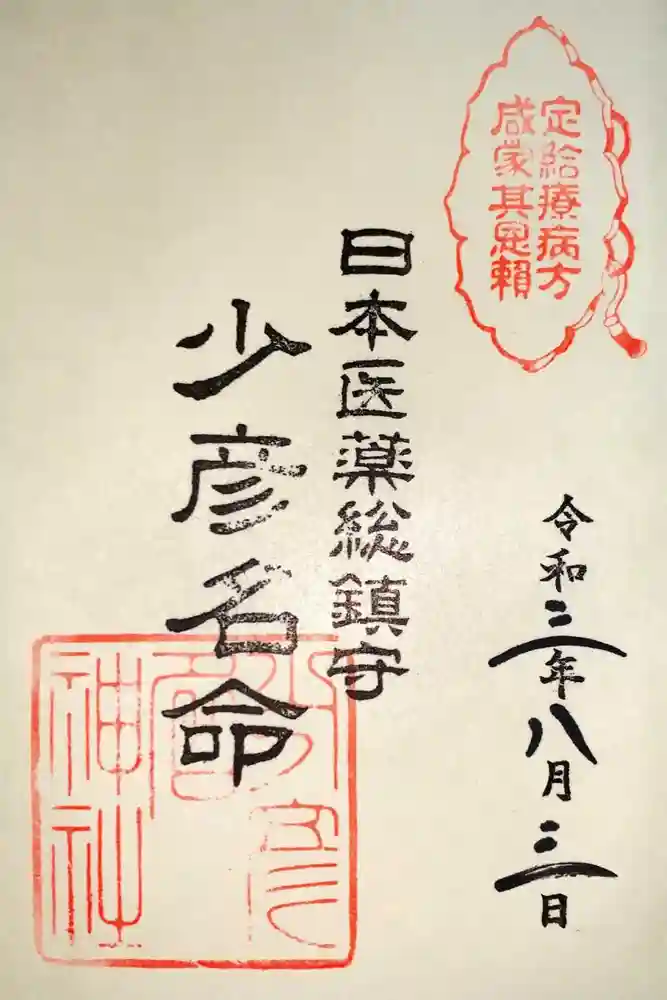 定給療病方
咸蒙其恩賴
令和三年八月三日
日本医薬総鎮守
少彦名命
少彦名
神社